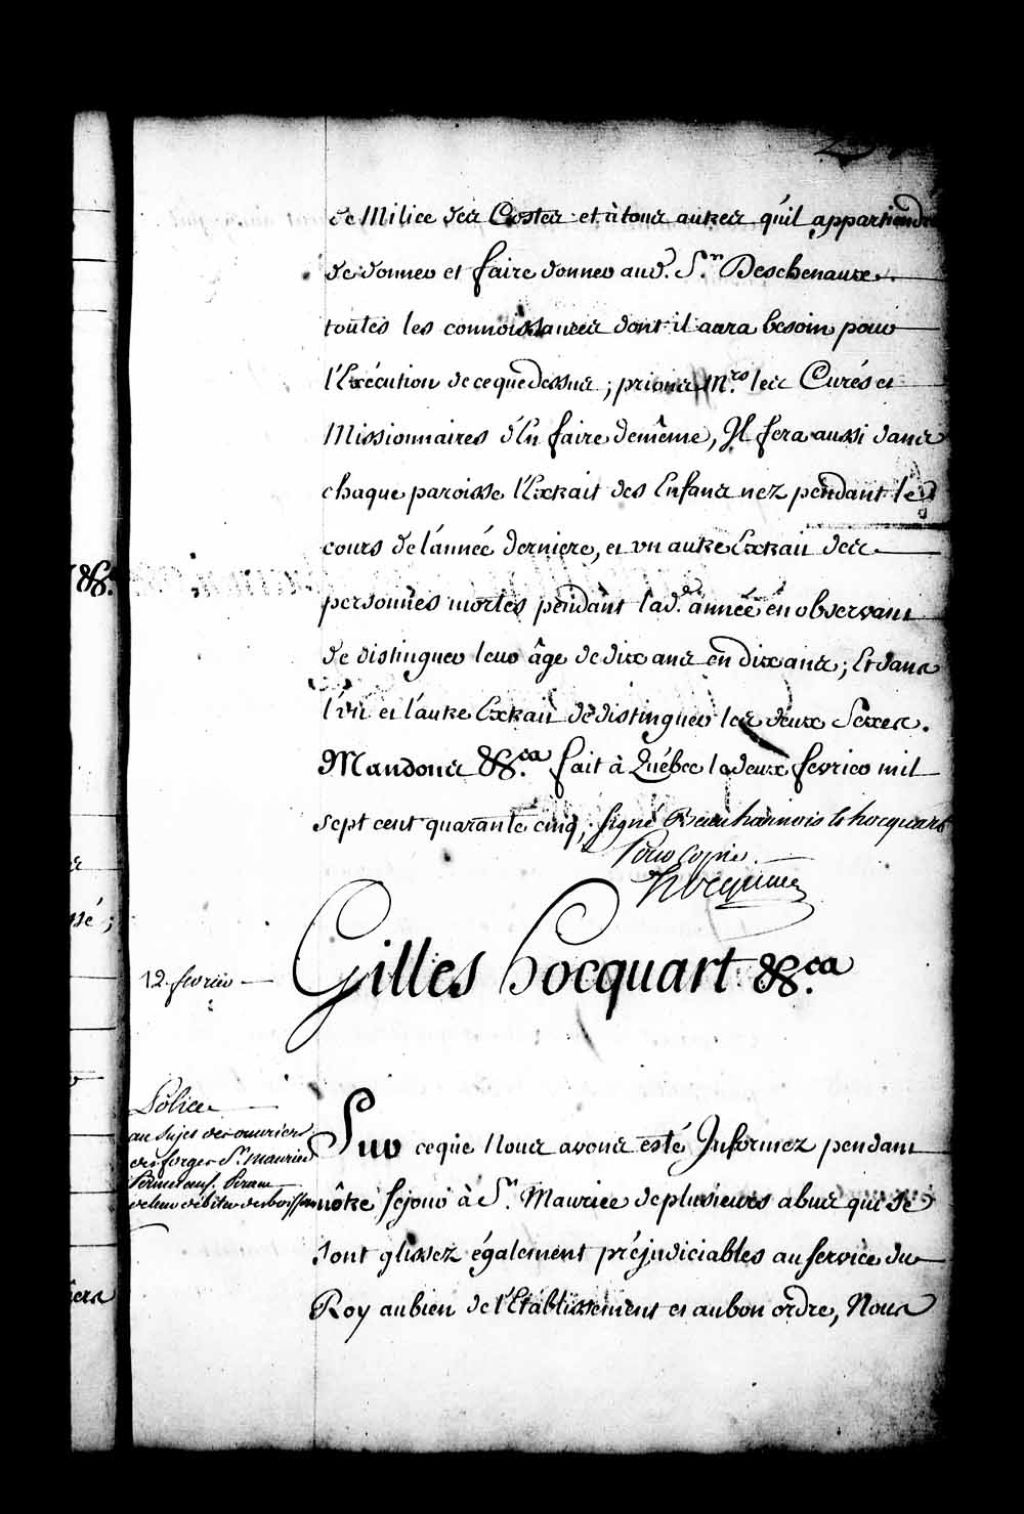 de Milice des Costes et à tous autres qu'il appartiendra
de donner et faire donner aud. S.r Deschenaux
toutes les connoissances dont il aura besoin pour
l'Exécution de ce que dessus ; prions M.rs les Curés et
Missionnaires d'En faire de même, Il fera aussi dans
chaque paroisse l'Extrait des Enfans nez pendant le
cours de l'année derniere, et un autre Extrait des
personnes mortes pendant lad.e année en observant
de distinguer leur âge de dix ans en dix ans ; Et dans
l'un et l'autre Extrait de distinguer les deux Sexes.
Mandons &c.a fait à Québec le deux fevrier mil
sept cent quarante cinq, signé Beauharnois & hocquart
Pour Copie.
Hocquart
Gilles hocquart &c.a
12. fevrier
Police
au sujet des ouvriers
des forges S.t Maurice
et leur débiter des boissons
Sur ce que Nous avons esté Informez pendant
nôtre sejour à S.t Maurice de plusieurs abus qui se
sont glissez également préjudiciables au service du
Roy au bien de l'Etablissement et au bon ordre, Nous